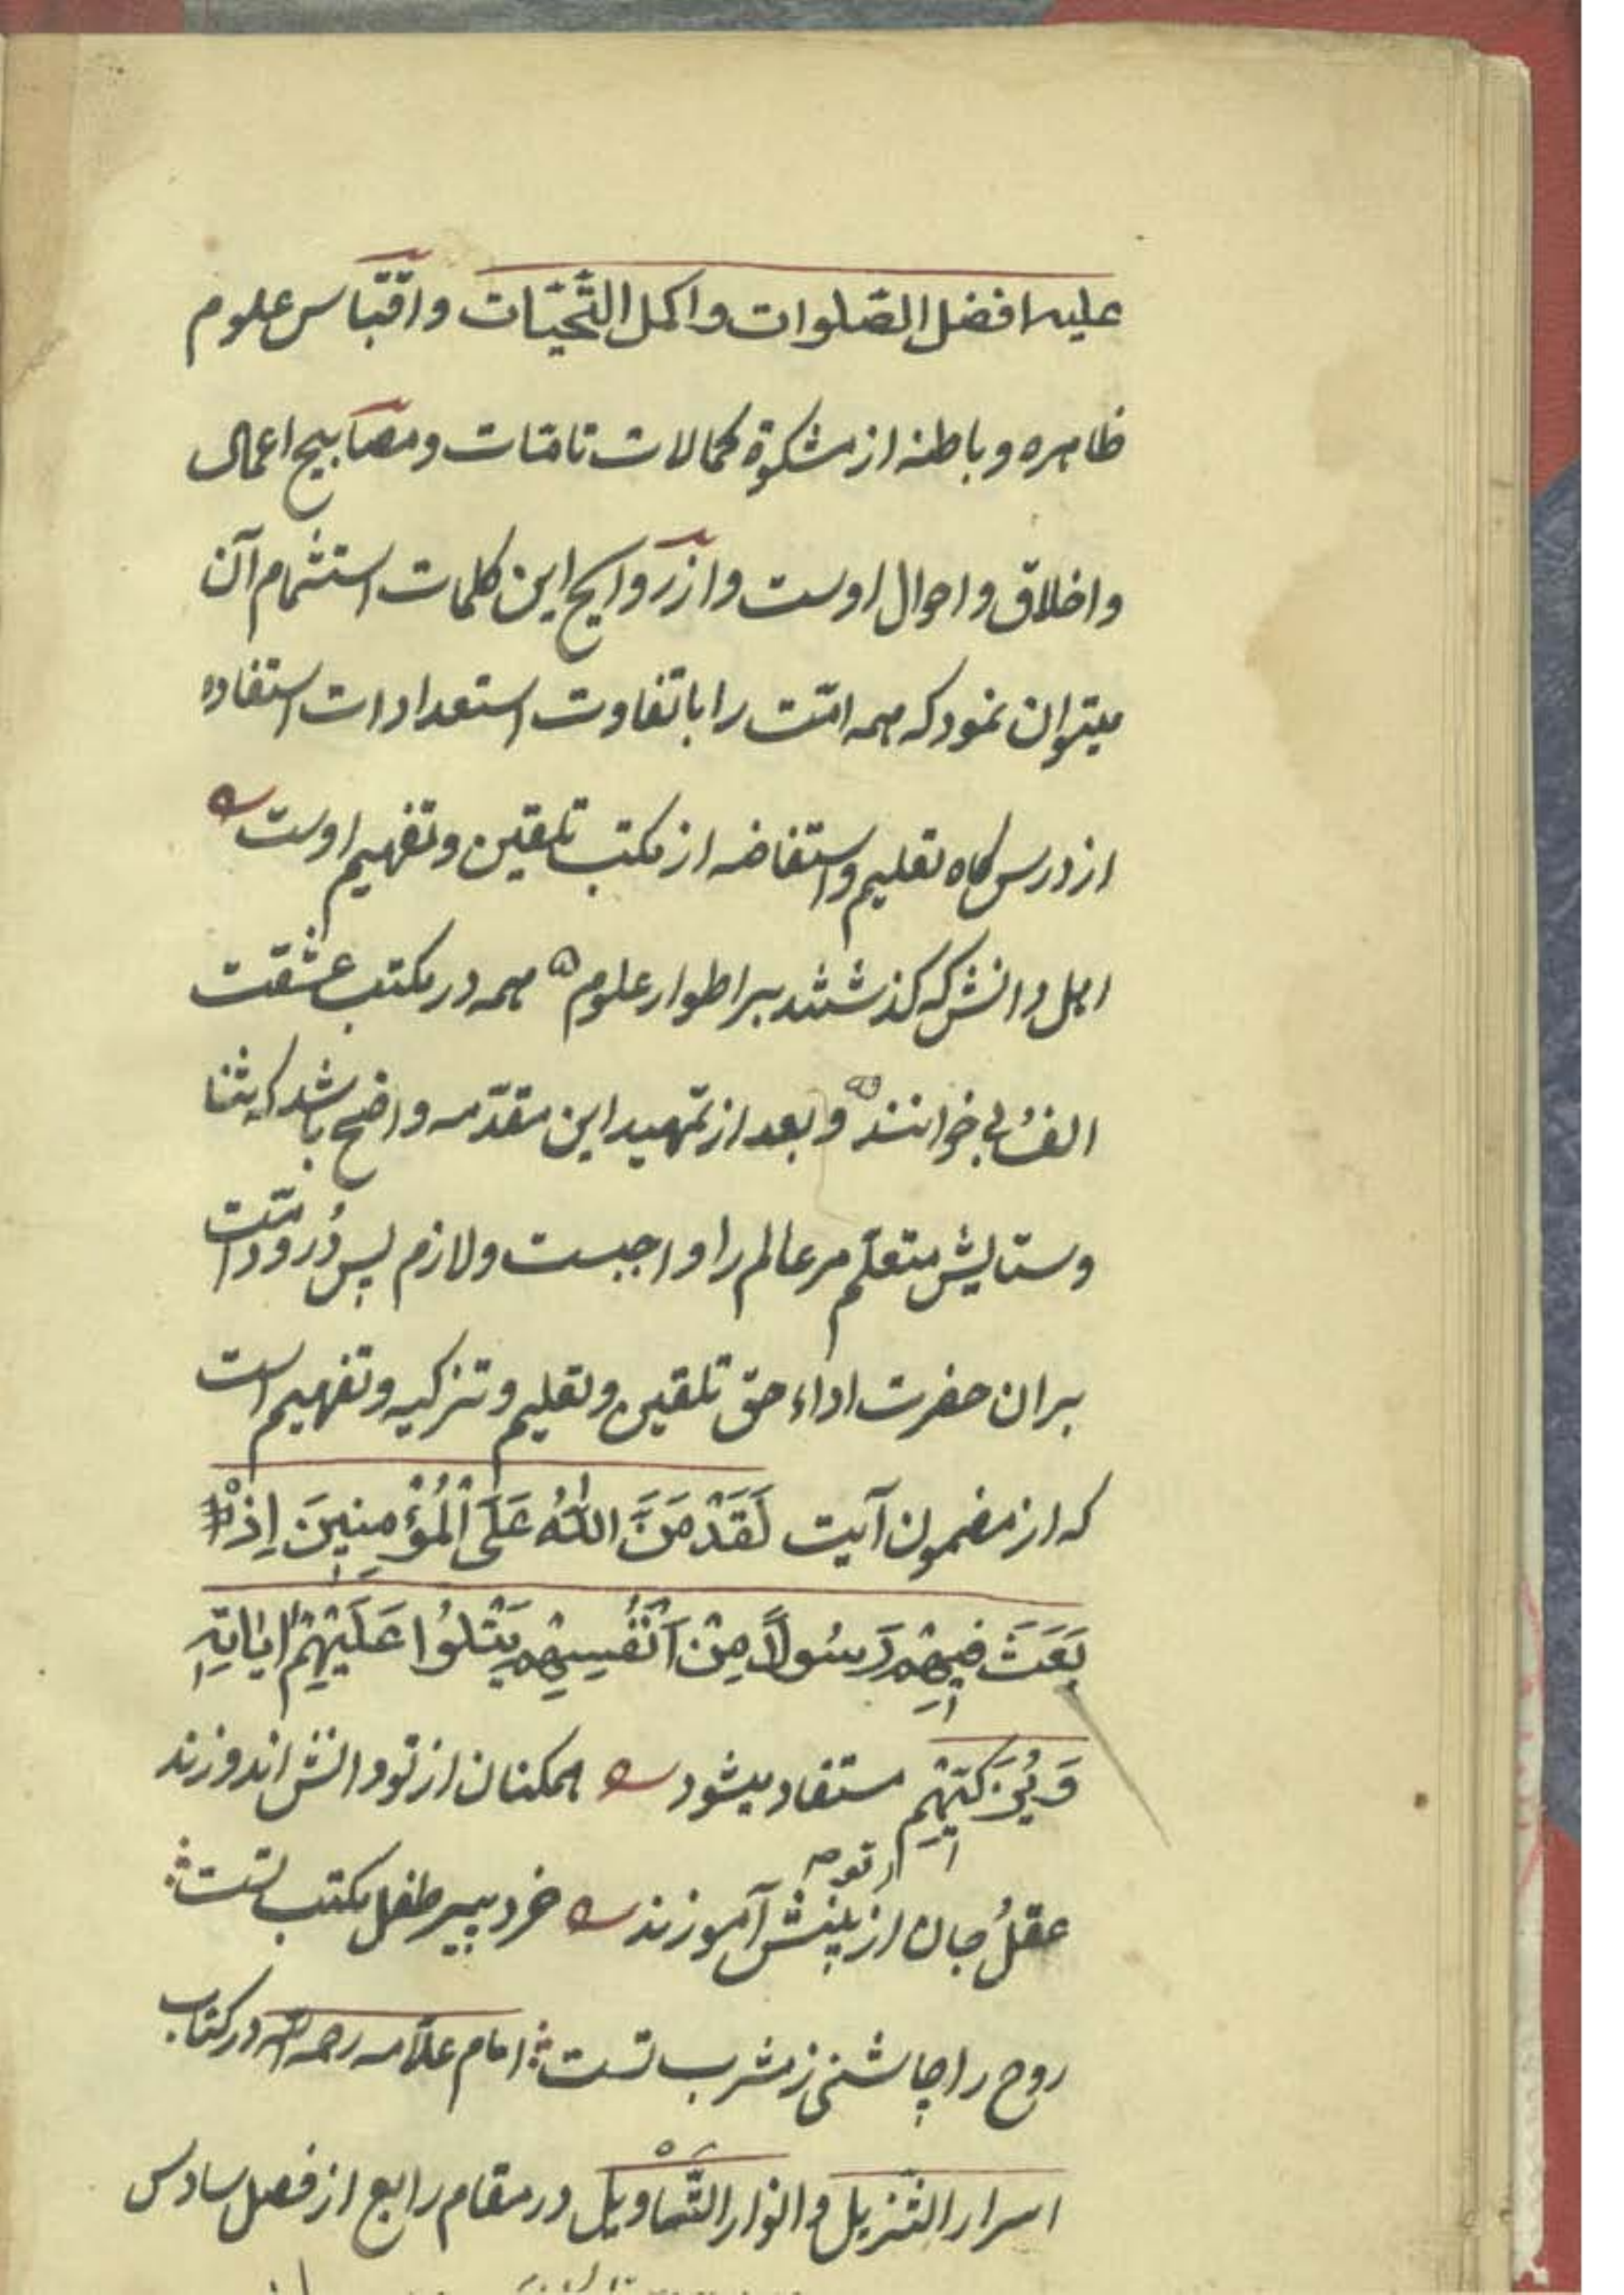 علیه افضل الصّلوات و اکمل التّحیّات و اقتباس علوم
ظاهره و باطنه از مشکوة کمالات تامّات و مصابیح اعمال
و اخلاق و احوال اوست و از روایح این کلمات استشمام آن
میتوان نمود که همه امّت را با تفاوت استعدادات استفاده
از درس کاه تعلیم و استفاضه از مکتب تلقین و تفهیم اوست
اهل دانش که کذشتند بر اطوار علوم همه در مکتب عشقت
الف بی خوانند و بعد از تمهید این مقدّمه واضح باشد که ثنا
و ستایش متعلّم مر عالم را واجبست و لازم پس دُرود امّت
بران حضرت اداء حقّ تلقین و تعلیم و تزکیه و تفهیم است
که از مضمون آیت لَقَدْ مَنَّ اللّٰهُ عَلَی الْمُؤْمِنِینَ اِذْ
بَعَثَ فِیهِمْ رَسُولاً مِنْ اَنْفُسِهِمْ یَتْلُوا عَلَیْهِمْ اٰیٰاتِهِ
وَ یُزَکِّیهِمْ مستفاد میشود ممکنان از تو دانش اندوزند
عقل جان از تو بینش آموزند خرد پیر طفل مکتب تست
روح را چاشنی ز مشرب تست امام علّامه رحمه الله در کتاب
اسرار التّنزیل و انوار التّاویل در مقام رابع از فصل سادس